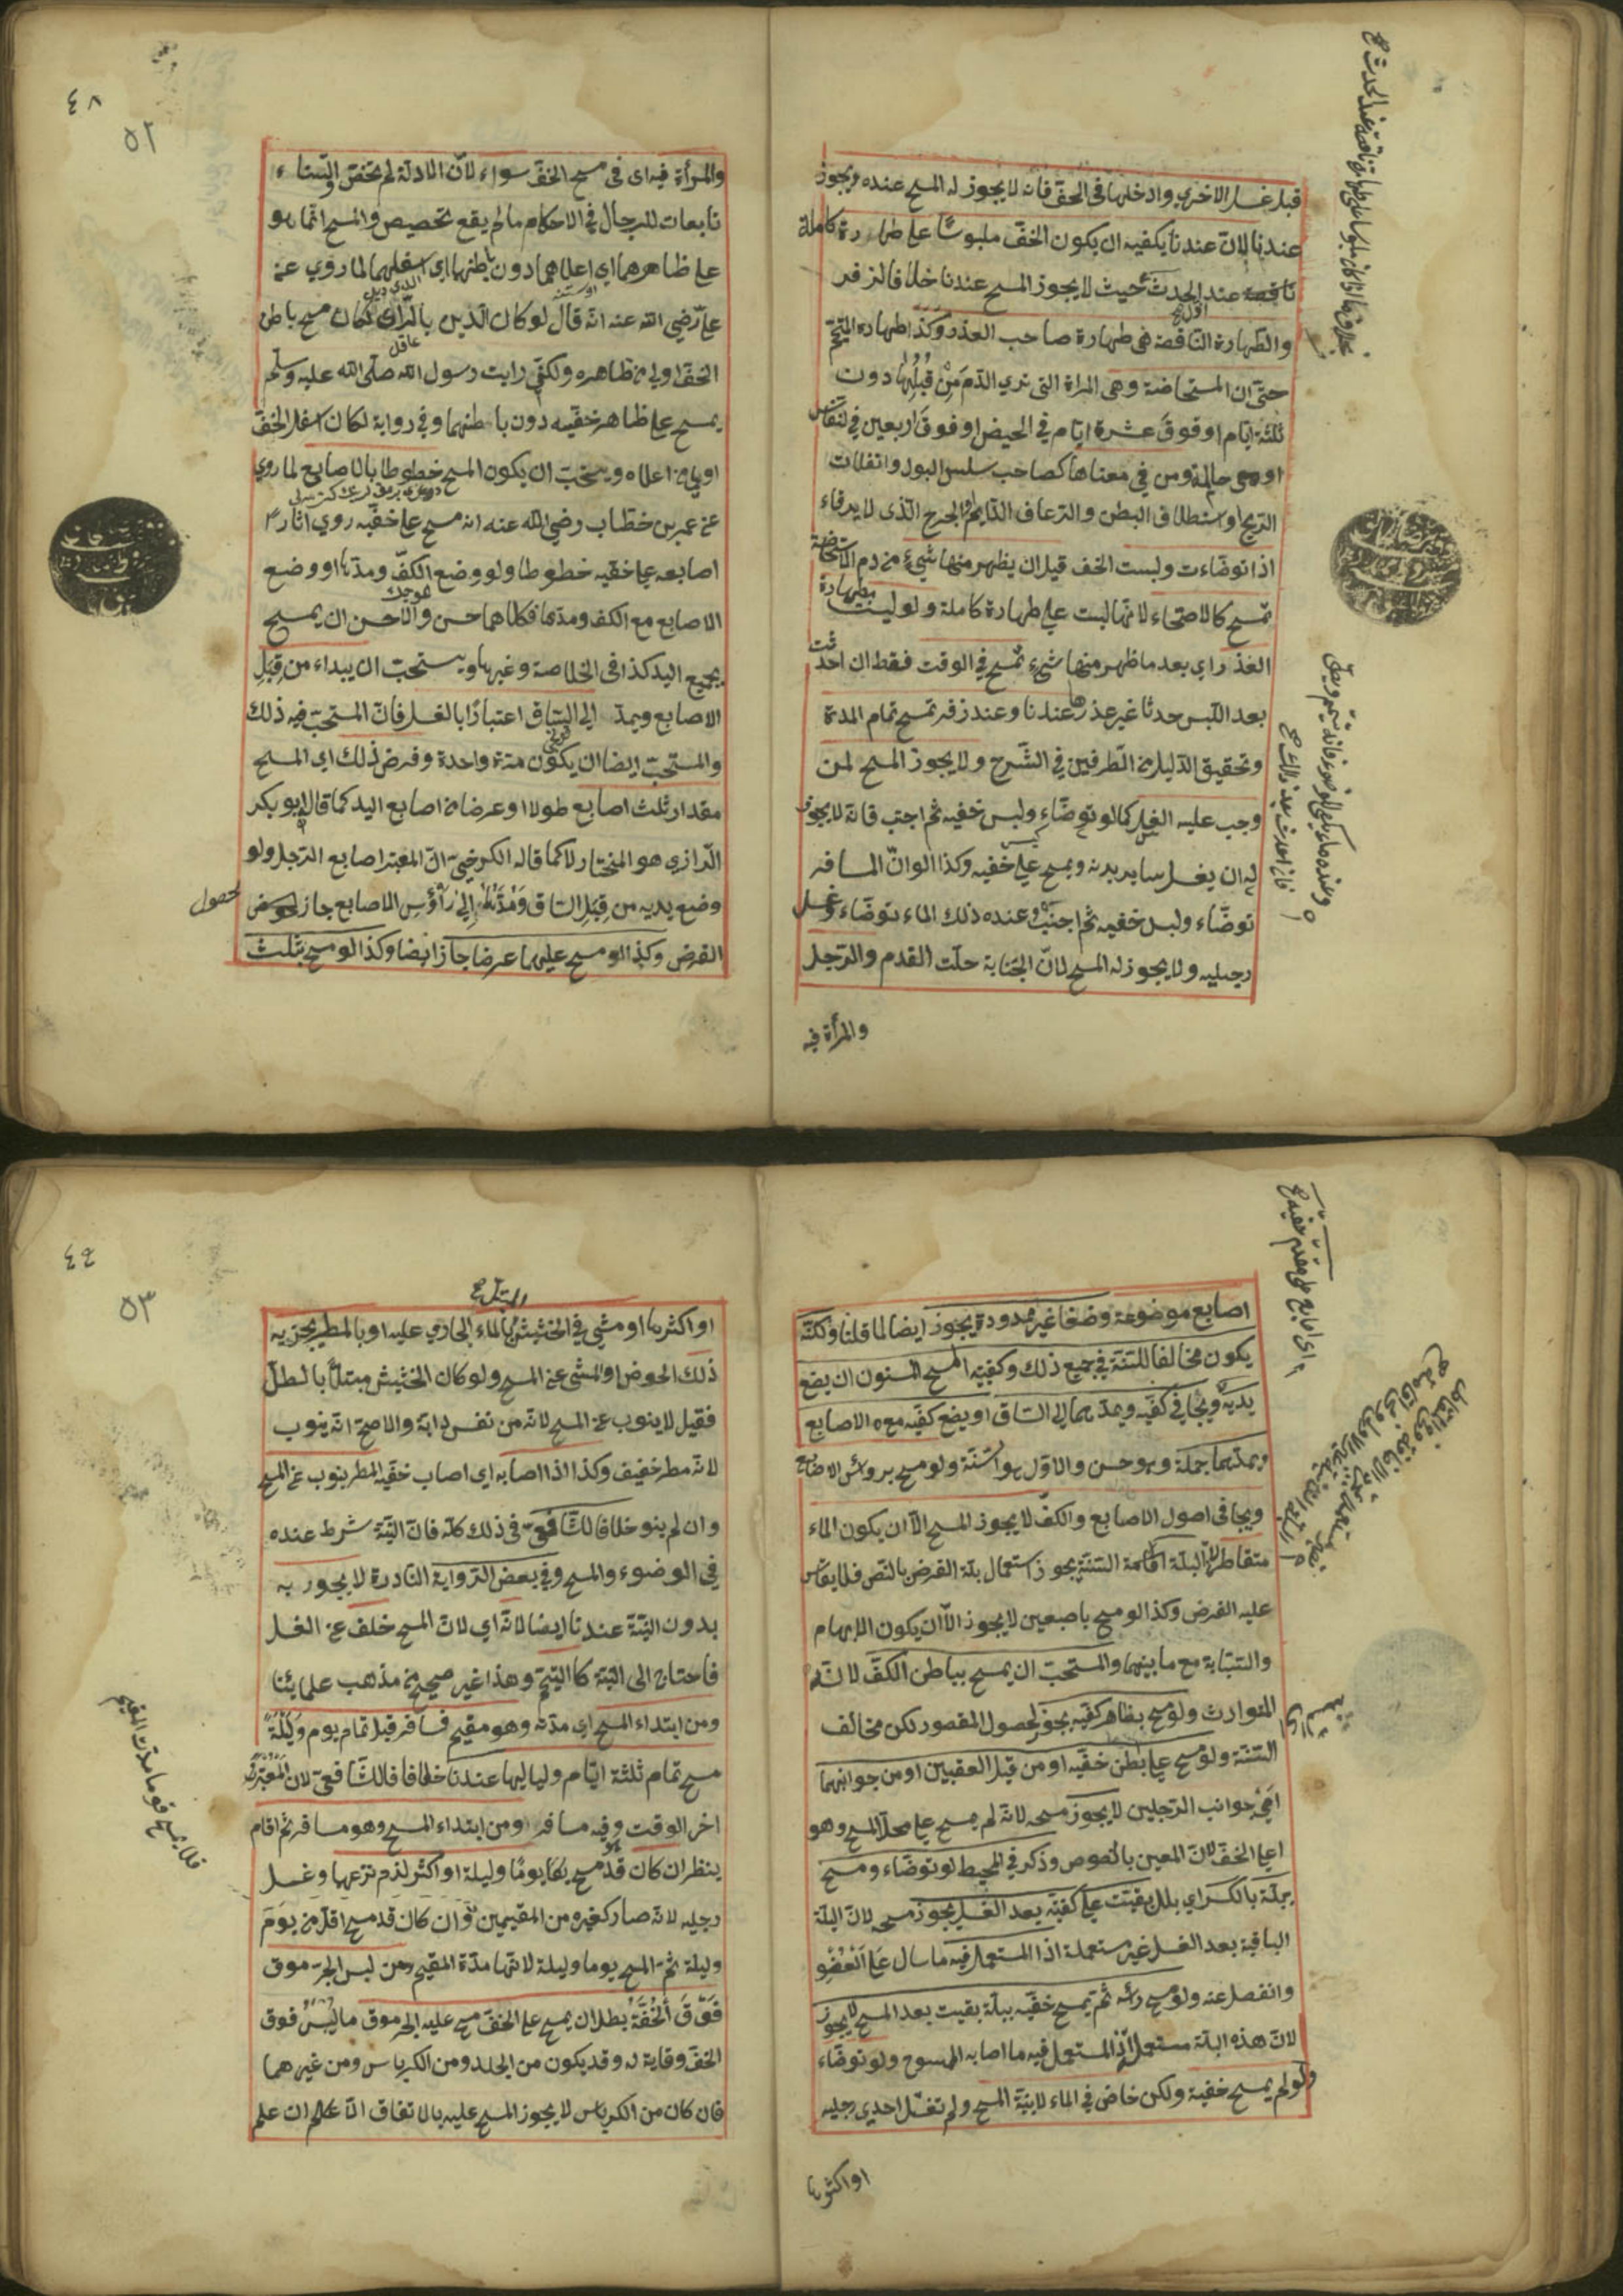 قبل غسل الاخرى وادخلها فى الخف فانه لا يجوز له المسح عنده ويجوز
عندنا لان عندنا يكفيه ان يكون الخف ملبوسًا على طهارة كاملة
ناقصة عند الحدث حيث لا يجوز المسح عندنا خلافا لزفر
والطهارة الناقصة هى طهارة صاحب العذر وكذا طهارة التيمم
حتى ان المستحاضة وهى المرأة التى ترى الدم مِنْ قُبُلِهَا دون
ثلثة ايام او فوق عشرة ايام فى الحيض او فوق اربعين فى النفاس
او هى حاملة ومن فى معناها كصاحب سلس البول وانفلات
الريح او استطلاق البطن والرعاف الدايم او الجرح الذى لا يرقاء
اذا توضاءت ولبست الخف قبل ان يظهر منها شىء من دم الاستحاضة
تمسح كالاصحاء لانها لبست على طهارة كاملة ولو لبست بطهارة
العذر اي بعد ما ظهر منها شىء تمسح فى الوقت فقط ان احدثت
بعد اللبس حدثا غير عذرها عندنا وعند زفر تمسح تمام المدة
وتحقيق الدليل من الطرفين فى الشرح ولا يجوز المسح لمن
وجب عليه الغسل كما لو توضاء ولبس خفيه ثم اجنب فانه لا يجوز
له ان يغسل ساير بدنه ويمسح على خفيه وكذا لو ان المسافر
توضاء ولبس خفيه ثم اجنب وعنده ذلك الماء توضاء وغسل
رجليه ولا يجوز له المسح لان الجنابة حلت القدم والرجل
والمرأة فيه
٤٨
٥٢
والمرأة فيه اى فى مسح الخف سواء لان الادلة لم تخص والنساء
تابعات للرجال فى الاحكام ما لم يقع تخصيص والمسح انما هو
على ظاهرهما اي اعلاهما دون باطنهما اي اسفلهما لما روي عن
على رضى الله عنه انه قال لو كان الدين بالراى لكان مسح باطن
الخف اولى من ظاهره ولكنى رايت رسول الله صلى الله عليه وسلم
يمسح على ظاهر خفيه دون باطنهما وفى رواية لكان اسفل الخف
اولى من اعلاه ويستحب ان يكون المسح خطوطا بالاصابع لما روي
عن عمر بن خطاب رضى الله عنه انه مسح على خفيه روي اثار
اصابعه على خفيه خطوطا ولو وضع الكف ومدها او وضع
الاصابع مع الكف ومدها فكلاهما حسن والاحسن ان يمسح
بجميع اليد كذا فى الخلاصة وغيرها ويستحب ان يبداء من قِبَلِ
الاصابع ويمد الى الساق اعتبارًا بالغسل فان المستحب فيه ذلك
والمستحب ايضا ان يكون مرة واحدة وفرض ذلك اي المسح
مقدار ثلث اصابع طولا او عرضا من اصابع اليد كما قال ابو بكر
الرازي هو المختار لا كما قاله الكرخي ان المعتبر اصابع الرجل ولو
وضع يديه من قِبَلِ الساق ومدها الى رؤس الاصابع جاز لحصول
الفرض وكذا لو مسح عليهما عرضا جاز ايضا وكذا لو مسح بثلث
اصابع موضوعة وضعا غير ممدودة يجوز ايضا لما قلنا ولكنه
يكون مخالفا للسنة فى جميع ذلك وكيفية المسح المسنون ان يضع
يديه ويجافى كفيه ويمدهما الى الساق او يضع كفيه مع الاصابع
ويمدهما جملة وهو حسن والاول هو السنة ولو مسح برؤس الاصابع
ويجافى اصول الاصابع والكف لا يجوز المسح الا ان يكون الماء
متقاطرا لان البلة اقامة السنة يجوز استعمال بلة الفرض بالنص فلا يقاس
عليه الفرض وكذا لو مسح باصبعين لا يجوز الا ان يكون الابهام
والسبابة مع ما بينهما والمستحب ان يمسح بباطن الكف لانه
المتوارث ولو مسح بظاهر كفيه يجوز لحصول المقصود لكن مخالف
السنة ولو مسح على باطن خفيه او من قبل العقبين او من جوانبهما
اي جوانب الرجلين لا يجوز مسحه لانه لم يمسح على محل المسح وهو
اعلى الخف لان المعين بالنصوص وذكر فى المحيط لو توضاء ومسح
ببلة بالكسر اي بلل بقيت على كفيه بعد الغسل يجوز مسحه لان البلة
الباقية بعد الغسل غير مستعملة اذ المستعمل فيه ما سال على العضو
وانفصل عنه ولو مسح رأسه ثم يمسح خفيه ببلة بقيت بعد المسح لا يجوز
لان هذه البلة مستعملة اذ المستعمل فيه ما اصابه الممسوح ولو توضاء
ولو لم يمسح خفيه ولكن خاض فى الماء لا بنية المسح ولم تغسل احدي رجليه
او اكثرها
٤٩
٥٣
او اكثرها او مشى فى الحشيش بالماء الجاري عليه او بالمطر يجزيه
ذلك الخوض او المشى عن المسح ولو كان الحشيش مبتلا بالطل
فقيل لا ينوب عن المسح لانه من نفس دابة والاصح انه ينوب
لانه مطر خفيف وكذا اذا اصابه اي اصاب خفيه المطر ينوب عن المسح
وان لم ينو خلافا للشافعى فى ذلك كله فان النية شرط عنده
فى الوضوء والمسح وفى بعض الرواية النادرة لا يجوز به
بدون النية عندنا ايضا لانه اي لان المسح خلف عن الغسل
فاحتاج الى النية كالتيمم وهذا غير صحيح من مذهب علمائنا
ومن ابتداء المسح اي مدته وهو مقيم فسافر قبل تمام يوم وليلة
مسح تمام ثلثة ايام ولياليها عندنا خلافا للشافعى لان المعتبر
اخر الوقت وفيه مسافر ومن ابتداء المسح وهو مسافر ثم اقام
ينظر ان كان قد مسح يوما وليلة او اكثر لزم نزعهما وغسل
رجليه لانه صار كغيره من المقيمين وان كان قد مسح اقل من يوم
وليلة تمم المسح يوما وليلة لانها مدة المقيم ومن لبس الجرموق
فوق الخف قبل ان يمسح على الخف مسح عليه الجرموق ما يلبس فوق
الخف وقاية له وقد يكون من الجلد ومن الكرباس ومن غيرهما
فان كان من الكرباس لا يجوز المسح عليه بالاتفاق